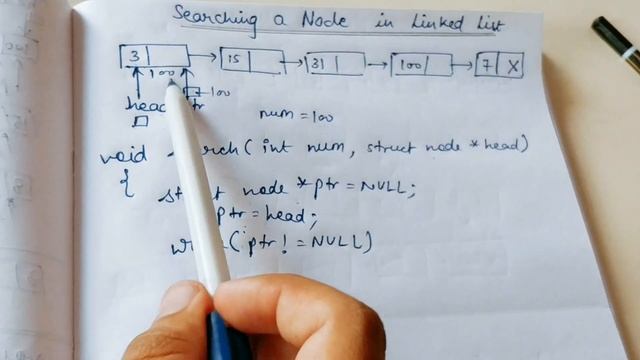 Searching a Node in Linked List
3 15 31 100 7 X
100
head 100
num = 100
void (int num, struct node * head)
{
node *ptr = NULL;
ptr = head;
(ptr ! = NULL)